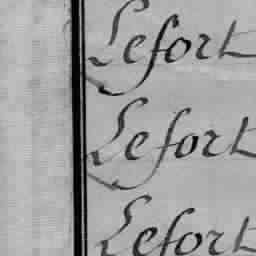 Lefort
Lefort
Lefort